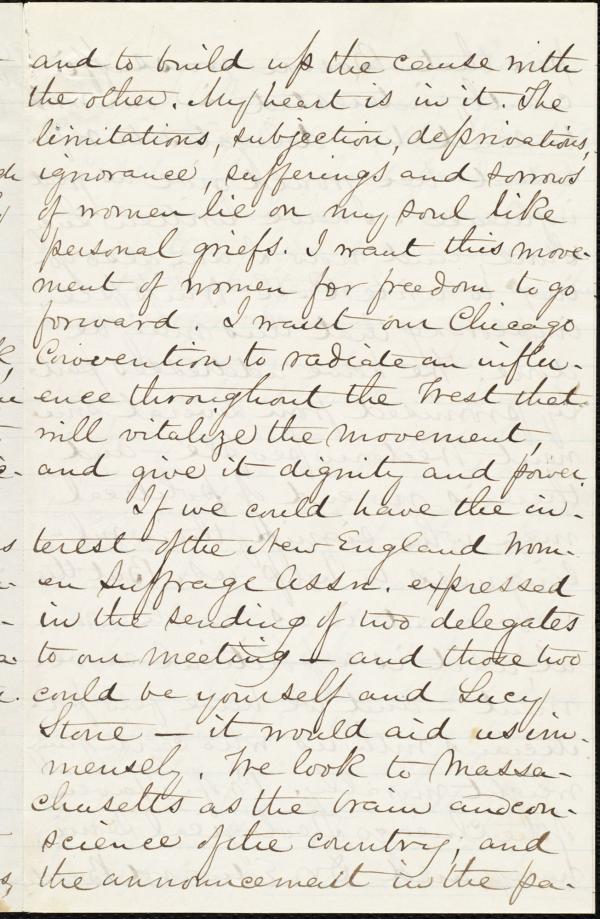 and to build up the cause with
the other. My heart is in it. The
limitations, subjection, deprivations,
ignorance, sufferings and sorrows
of women lie on my soul like
personal griefs. I want this move-
ment of women for freedom to go
forward. I want our Chicago
Convention to radiate an influ-
ence throughout the West that
will vitalize the movement,
and give it dignity and power.
If we could have the in-
terest of the New England Wom-
en Suffrage Assn. expressed
in the sending of two delegates
to our meeting — and those two
could be yourself and Lucy
Stone — it would aid us im-
mensely. We look to Massa-
chusetts as the brain and con-
science of the country, and
the announcement in the pa-